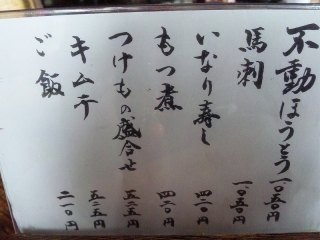 不動ほうとう 一〇五〇円
馬刺 一〇五〇円
いなり寿し 四二〇円
もつ煮 四二〇円
つけもの盛合せ 五二五円
キムチ 五二五円
ご飯 二一〇円